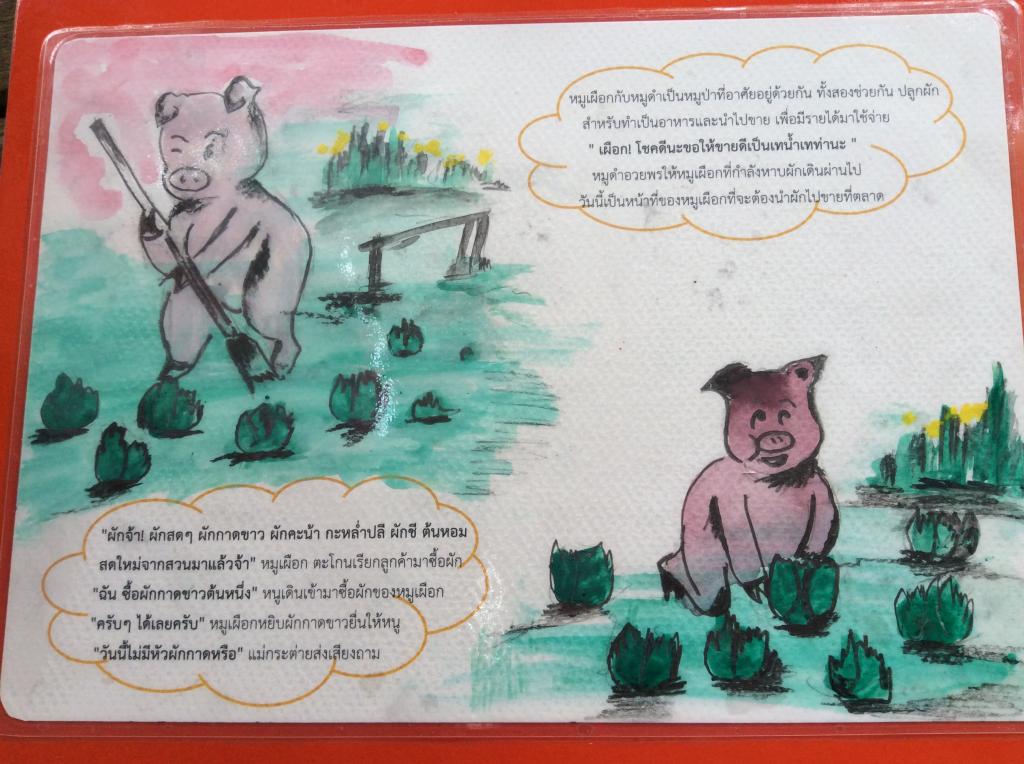 หมูเผือกกับหมูดำเป็นหมูป่าที่อาศัยอยู่ด้วยกัน ทั้งสองช่วยกัน ปลูกผัก
สำหรับทำเป็นอาหารและนำไปขาย เพื่อมีรายได้มาใช้จ่าย
" เผือก! โชคดีนะขอให้ขายดีเป็นเทน้ำเทท่านะ "
หมูดำอวยพรให้หมูเผือกที่กำลังหาบผักเดินผ่านไป
วันนี้เป็นหน้าที่ของหมูเผือกที่จะต้องนำผักไปขายที่ตลาด
"ผักจ้า! ผักสดๆ ผักกาดขาว ผักคะน้า กะหล่ำปลี ผักชี ต้นหอม
สดใหม่จากสวนมาแล้วจ้า" หมูเผือก ตะโกนเรียกลูกค้ามาซื้อผัก
"ฉัน ซื้อผักกาดขาวต้นหนึ่ง" หนูเดินเข้ามาซื้อผักของหมูเผือก
"ครับๆ ได้เลยครับ" หมูเผือกหยิบผักกาดขาวยื่นให้หนู
"วันนี้ไม่มีหัวผักกาดหรือ" แม่กระต่ายส่งเสียงถาม